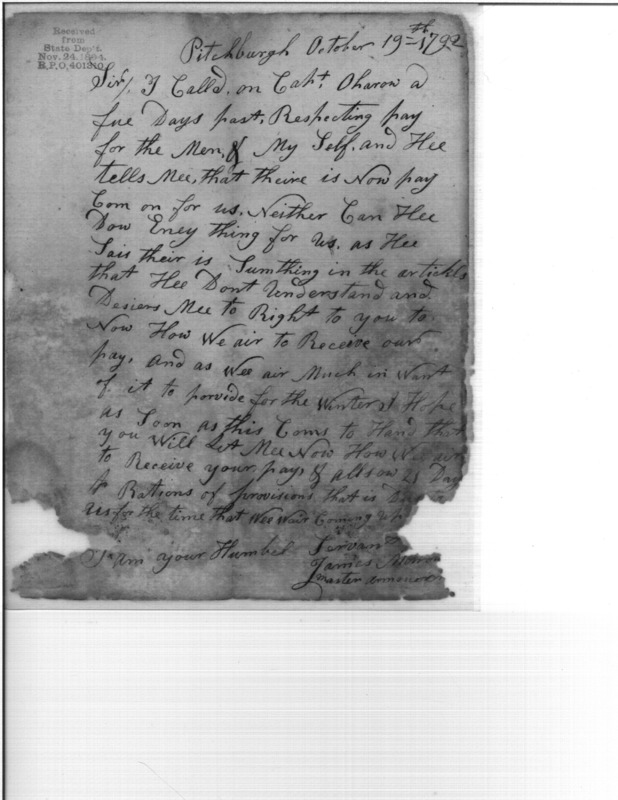 Received
from
State Dep't.
Nov. 24. 1894.
R.P.O. 401310.
Pitchburgh October 19th 1792
Sir/, I Calld, on Capt, Oharow a
fue Days past, Respecting pay
for the Men, & My Self, and Hee
tells Mee, that theire is Now pay
Com on for us, Neither Can Hee
Dow Eney thing for us, as Hee
Sais their is Sumthing in the artickls
that Hee Dont Understand and
Desiers Mee to Right to you to
Now How We air to Receive our
pay, and as Wee air Much in Want
of it to porvide for the Winter I Hope
as Soon as this Coms to Hand that
you Will Let Mee Now How Wee air
to Receive your pay, & allsow 21 Day
Rations of provisions that is Due to
us for the time that Wee Wair Coming up
I am your Humbel Sirvant
James
master armourer